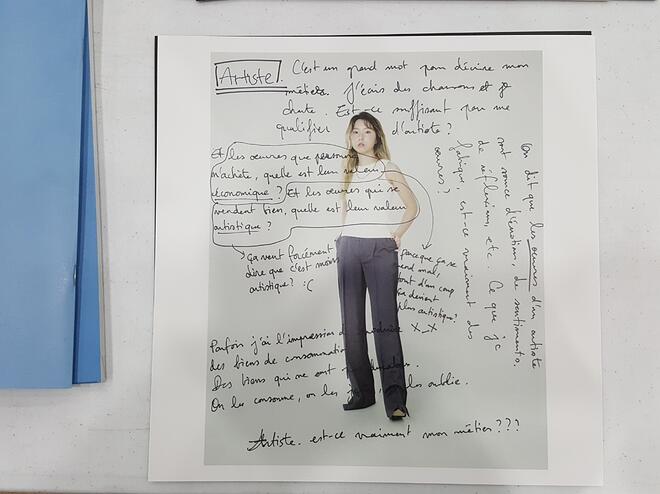 Artiste. C'est un grand mot pour décrire mon
métier. J'écris des chansons et je
chante. Est-ce suffisant pour me
qualifier d'artiste ?
Et les œuvres que personne
n'achète, quelle est leur valeur
économique ? Et les œuvres qui se
vendent bien, quelle est leur valeur
artistique ?
ça veut forcément
dire que c'est moins
artistique ? :(
parce que ça se
vend mal,
tout d'un coup
ça devient
plus artistique ?
X_X
On dit que les œuvres d'un artiste
sont source d'émotions, de sentiments,
de réflexions, etc. Ce que je
fabrique, est-ce vraiment des
œuvres ?
Parfois j'ai l'impression de produire
des biens de consommation.
Des biens qui ne sont pas
On les consomme, on les les oublie.
Artiste. est-ce vraiment mon métier ???